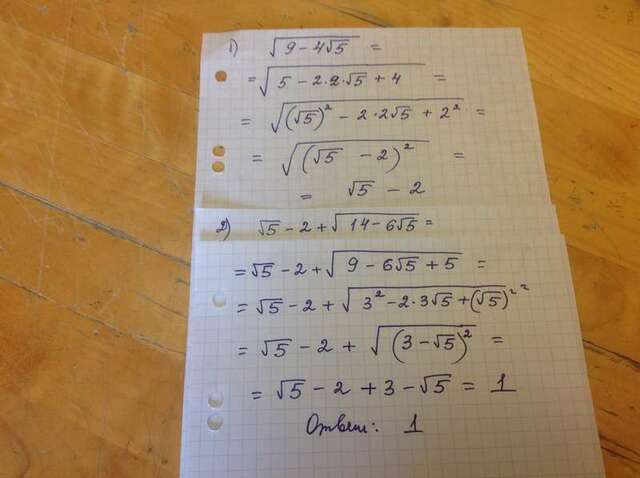 1) √(9 - 4√5) =
= √(5 - 2·2·√5 + 4) =
= √((√5)² - 2·2√5 + 2²) =
= √((√5 - 2)²) =
= √5 - 2
2) √5 - 2 + √(14 - 6√5) =
= √5 - 2 + √(9 - 6√5 + 5) =
= √5 - 2 + √(3² - 2·3√5 + (√5)²) =
= √5 - 2 + √((3 - √5)²) =
= √5 - 2 + 3 - √5 = 1
Ответ: 1